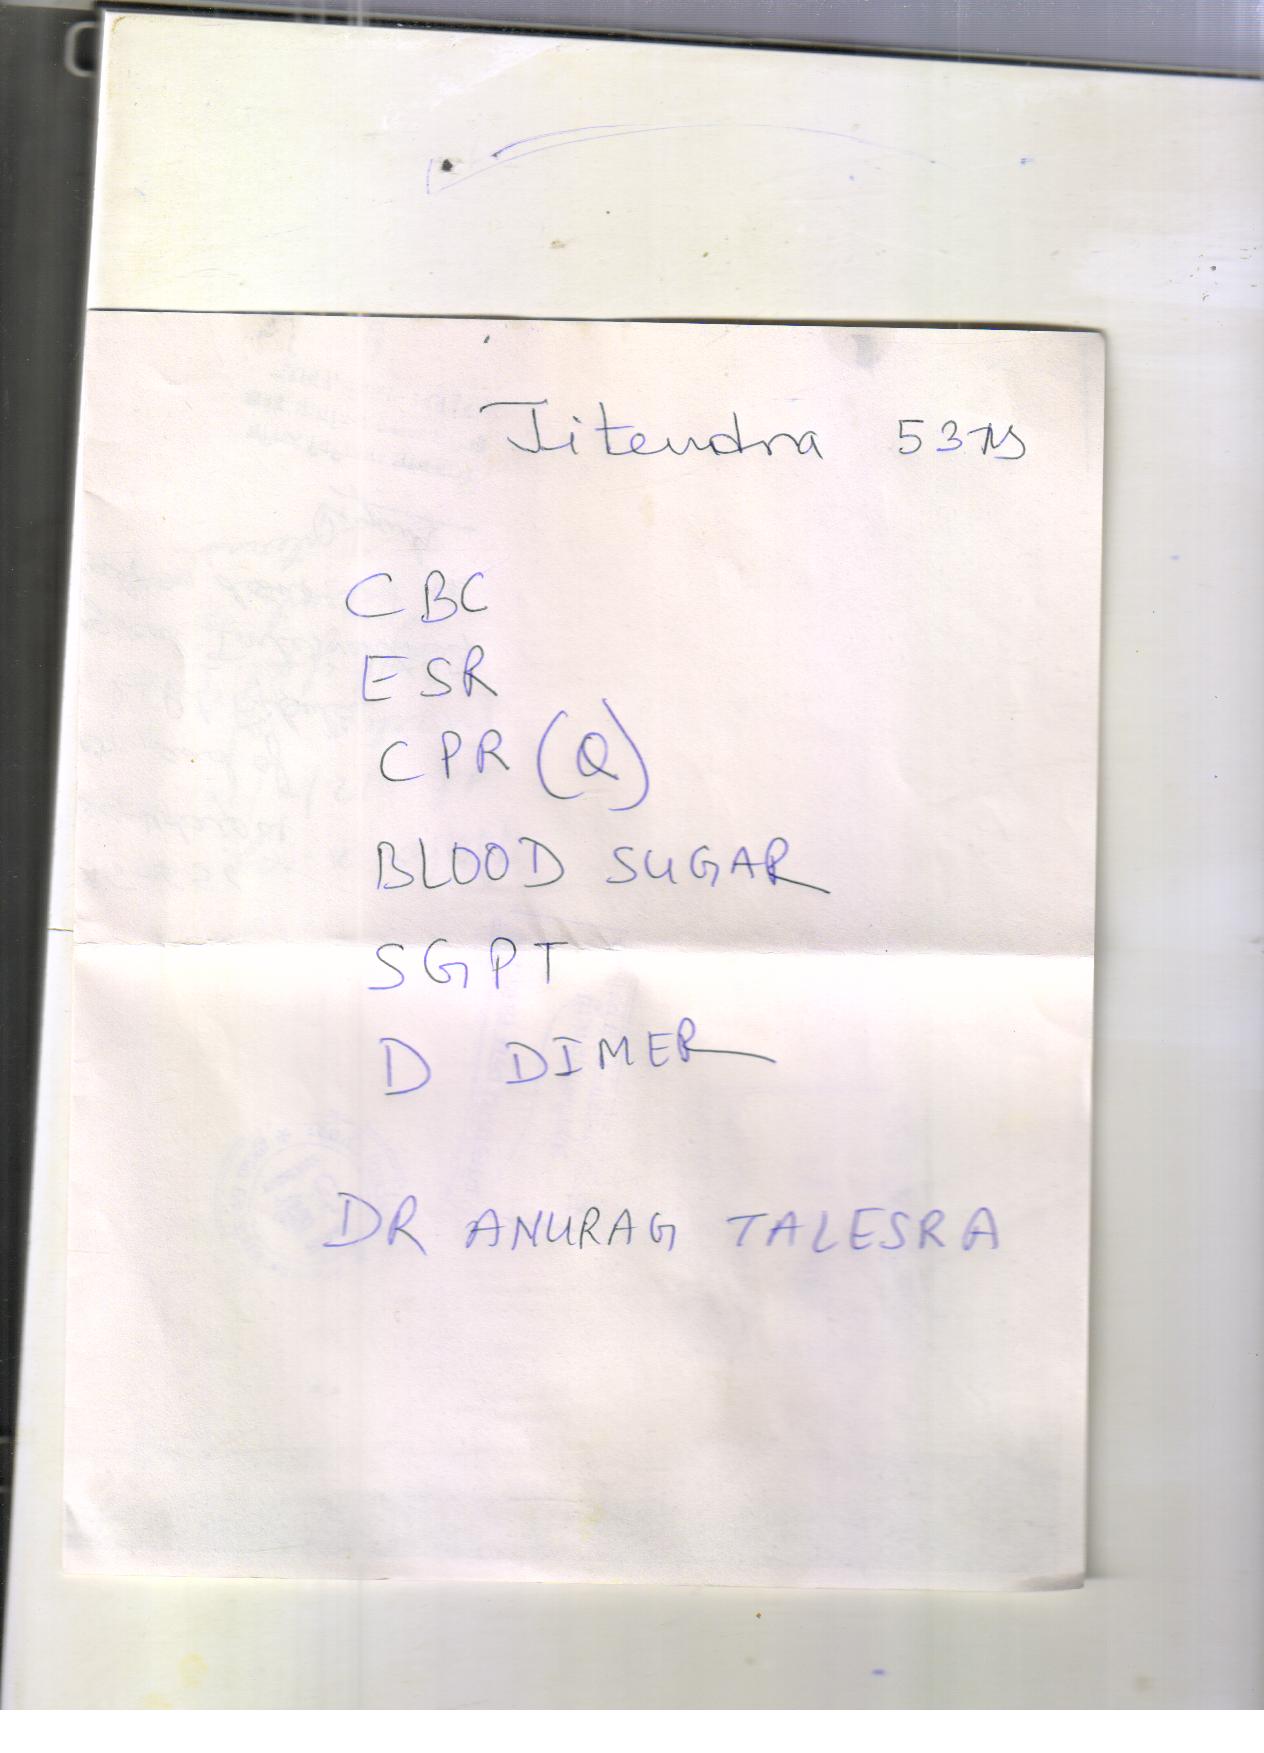 Jitendra 53 yrs
CBC
ESR
CPR (Q)
BLOOD SUGAR
SGPT
D DIMER
DR ANURAG TALESRA